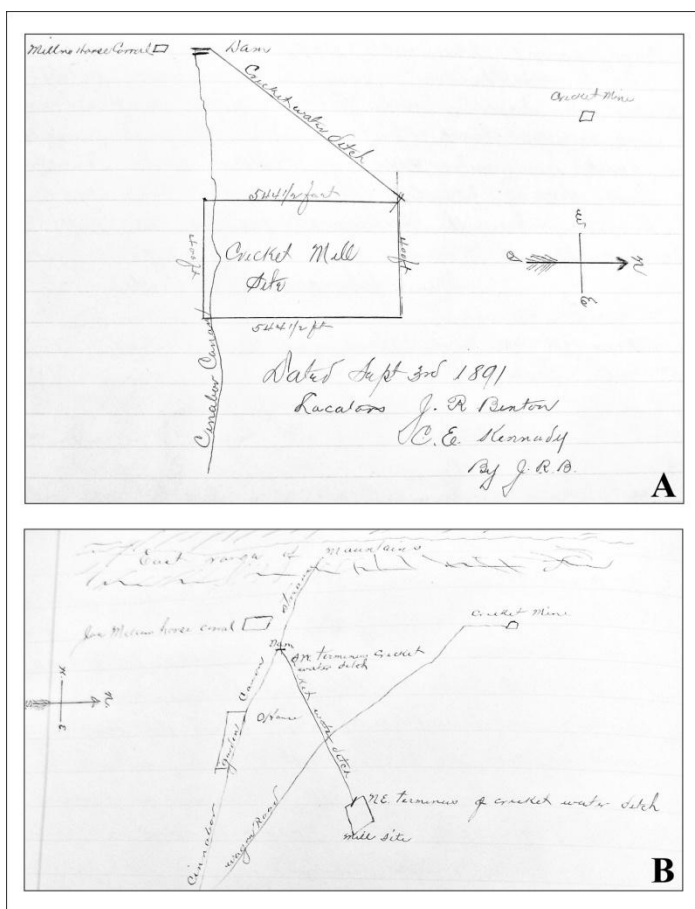 Horse Corral
Dam
Cricket water ditch
Cricket Mine
544 1/2 feet
400 ft
Cricket Mill
Site
400 ft
544 1/2 ft
Cinabor Canon
W
S
N
E
Dated Sept 3rd 1891
Locators J. R Benton
C. E. Kennady
By J. R. B.
A
East range of Mountains
horse corral
Cricket Mine
Dam
S.W. terminus Cricket
water ditch
Canon
water ditch
garden
N
E
N.E. terminus of cricket water ditch
Mill site
Wagon Road
Cinnabor
B